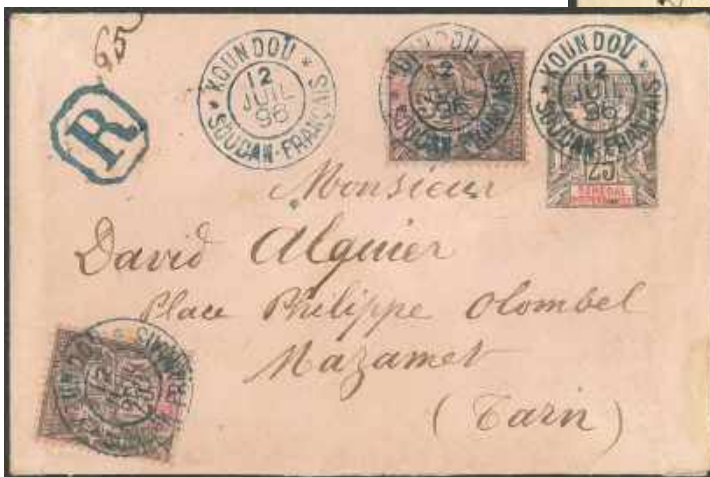 65
R
KOUNDOU
12
JUIL
96
SOUDAN-FRANÇAIS
KOUNDOU
12
JUIL
96
SOUDAN FRANÇAIS
KOUNDOU
12
JUIL
96
SOUDAN-FRANÇAIS
25
SÉNÉGAL
Monsieur
David Alquier
Place Philippe Olombel
Mazamet
(Tarn)
12